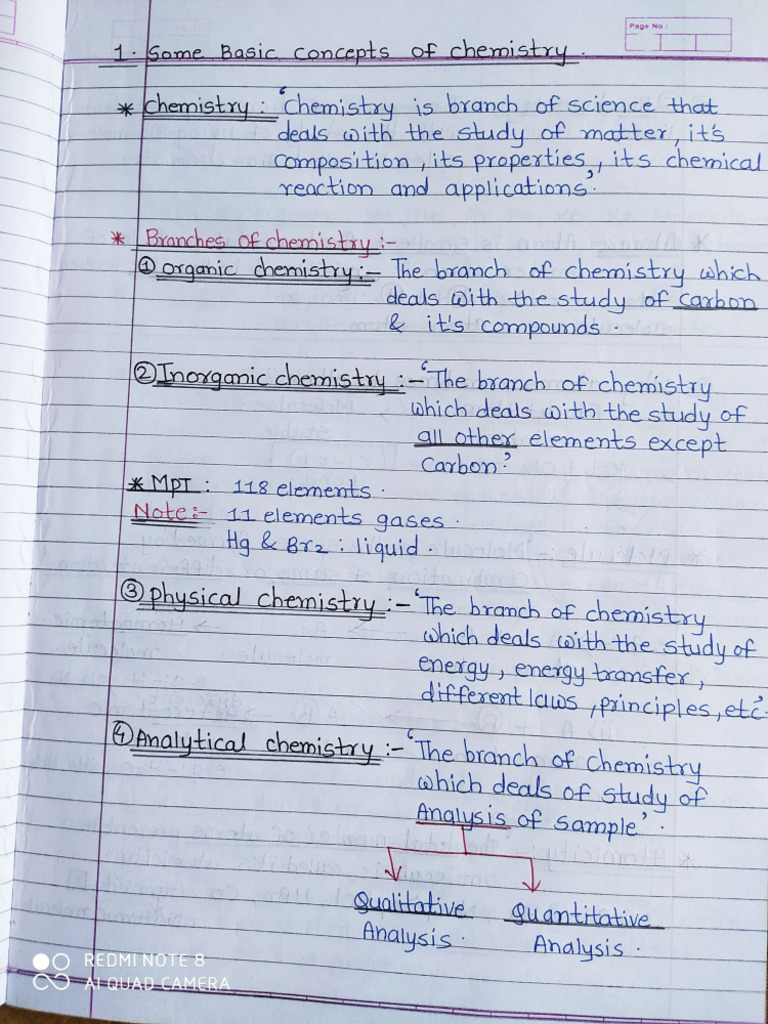 Page No.:
1. Some Basic concepts of chemistry.
* Chemistry : 'Chemistry is branch of science that
deals with the study of matter, it's
composition, its properties, its chemical
reaction and applications'.
* Branches of chemistry :-
① organic chemistry :- The branch of chemistry which
deals with the study of carbon
& it's compounds.
② Inorganic chemistry :- 'The branch of chemistry
which deals with the study of
all other elements except
carbon'.
* MPT : 118 elements.
Note :- 11 elements gases.
Hg & Br2 : liquid.
③ physical chemistry :- 'The branch of chemistry
which deals with the study of
energy, energy transfer,
different laws, principles, etc'.
④ Analytical chemistry :- 'The branch of chemistry
which deals of study of
Analysis of sample'.
Qualitative Quantitative
Analysis. Analysis.
REDMI NOTE 8
AI QUAD CAMERA